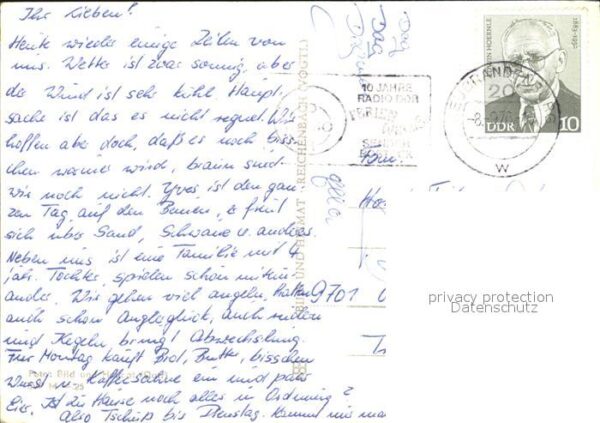 Ihr Lieben!
Heute wieder einige Zeilen von
uns. Wetter ist zwar sonnig, aber
der Wind ist sehr kühl. Haupt-
sache ist das es nicht regnet. Wir
hoffen aber doch, daß es noch biss-
chen warmer wird, braun sind
wir noch nicht. Yves ist den gan-
zen Tag auf den Beinen, er freut
sich über Sand, Schwäne u. anderes.
Neben uns ist eine Familie mit 4
jähr. Tochter, spielen schön mitein-
ander. Wir gehen viel angeln, hatten
auch schon Anglerglück, auch
und Kegeln, bringt Abwechslung.
Für Montag kauft Brot, Butter, bisschen
Wurst u. Kaffeesahne ein und paar
Eier. Ist zu Hause noch alles in Ordnung?
Also Tschüß bis Dienstag.
BILD UND HEIMAT REICHENBACH (VOGTL)
Foto: Bild und Heimat
10 JAHRE
RADIO DDR
FERIEN
WELLE
SENDER
20
W
EDWIN HOERNLE
1883-1952
DDR 10
9701
privacy protection
Datenschutz